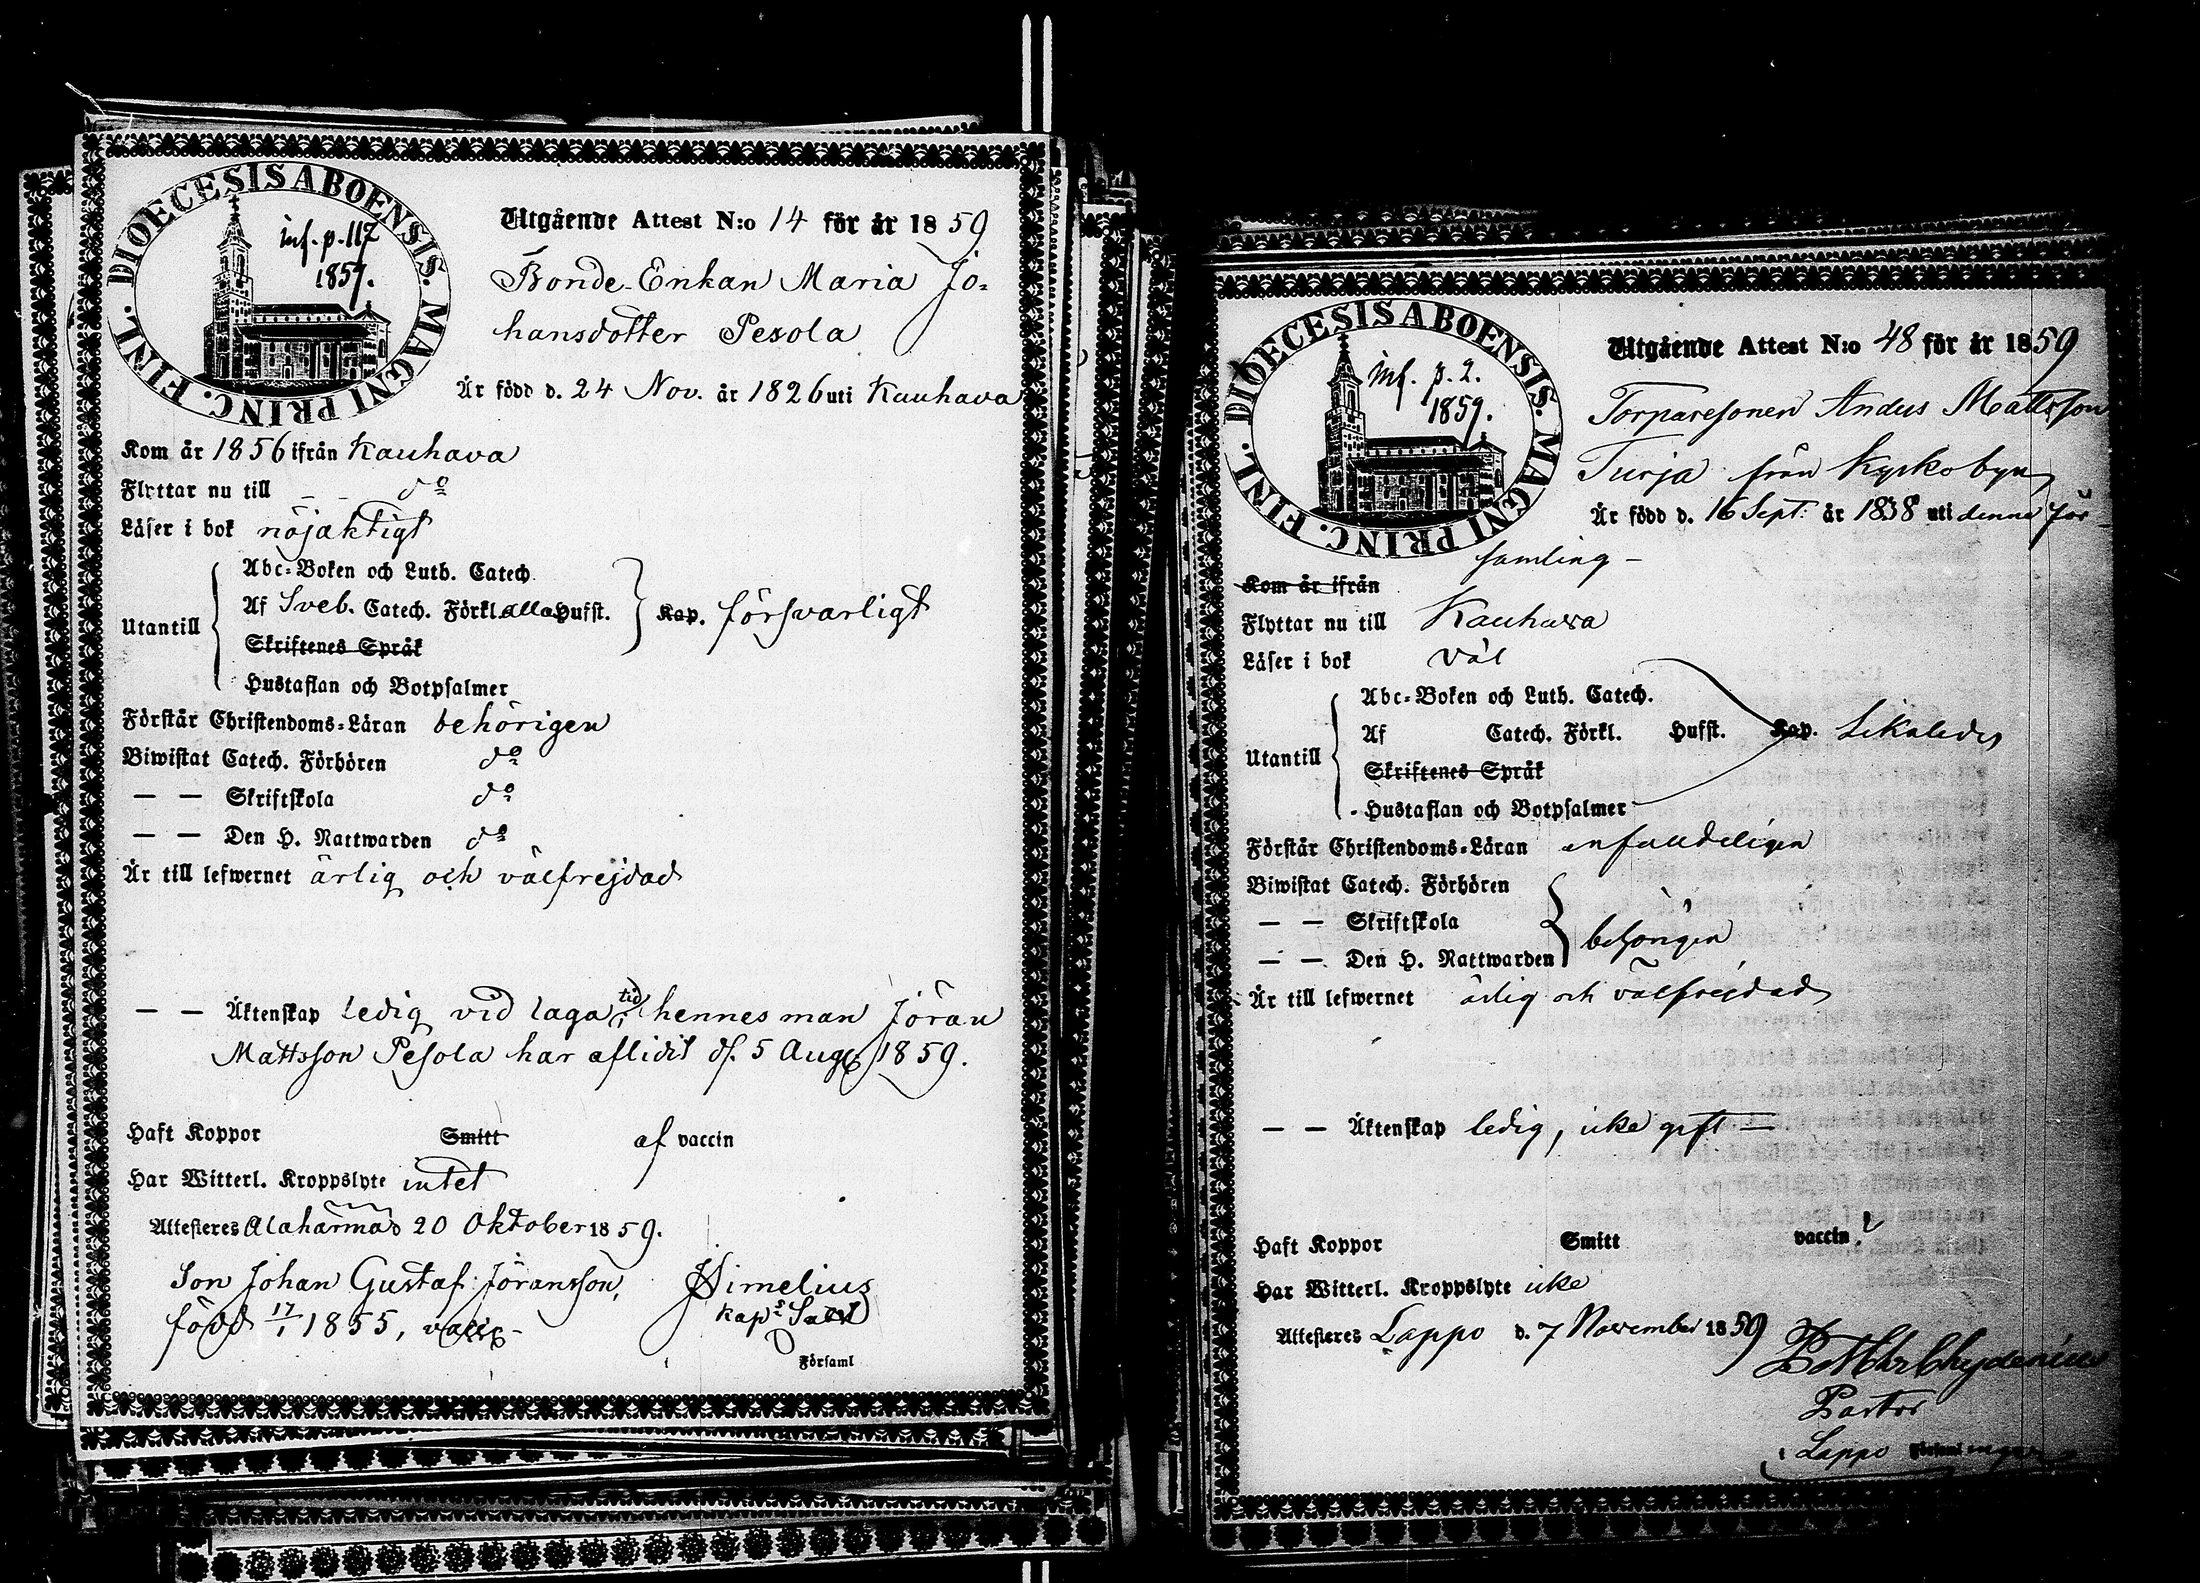 DIOECESIS ABOENSIS. MAGNI PRINC. FINL.
inf. p. 117
1859.
Utgående Attest N:o 14 för år 1859
Bonde-Enkan Maria Jo=
hansdotter Pesola
Är född d. 24 Nov. år 1826 uti Kauhava
Kom år 1856 ifrån Kauhava
Flyttar nu till _ _ do
Läser i bok nöjaktigt
Utantill
Abc=Boken och Luth. Catech.
Af Sveb. Catech. Förkl. alla Hufst.
Skriftenes Språk
Hustaflan och Botpsalmer
Kap. försvarligt
Förstår Christendoms=Läran behörigen
Biwistat Catech. Förhören do
— — Skriftskola do
— — Den H. Nattwarden do
Är till lefwernet ärlig och välfrejdad
— — Äktenskap ledig vid laga tid, hennes man Jöran
Mattsson Pesola har aflidit d. 5 Aug. 1859.
Haft Koppor Smitt af vaccin
Har Witterl. Kroppslyte intet
Attesteras Alahärmä d 20 Oktober 1859.
Son Johan Gustaf Jöransson,
född 17/1 1855, vacc.
Simelius
Kap:
Församl
DIOECESIS ABOENSIS. MAGNI PRINC. FINL.
inf. p. 2.
1859.
Utgående Attest N:o 48 för år 1859
Torparesonen Andus Mattsson
Turja från Kyrkobyn
Är född d. 16 Sept: år 1838 uti denna för-
samling –
Kom år ifrån
Flyttar nu till Kauhava
Läser i bok väl
Utantill
Abc=Boken och Luth. Catech.
Af Catech. Förkl. Hufst.
Skriftenes Språk
Hustaflan och Botpsalmer
Kap. likaledes
Förstår Christendoms=Läran enfaldeligen
Biwistat Catech. Förhören
— — Skriftskola
— — Den H. Nattwarden
behörigen
Är till lefwernet ärlig och välfrejdad
— — Äktenskap ledig, icke gift —
Haft Koppor Smitt vaccin?
Har Witterl. Kroppslyte icke
Attesteras Lappo d. 7 November 1859
Chydenius
Pastor
i Lappo Församlingar